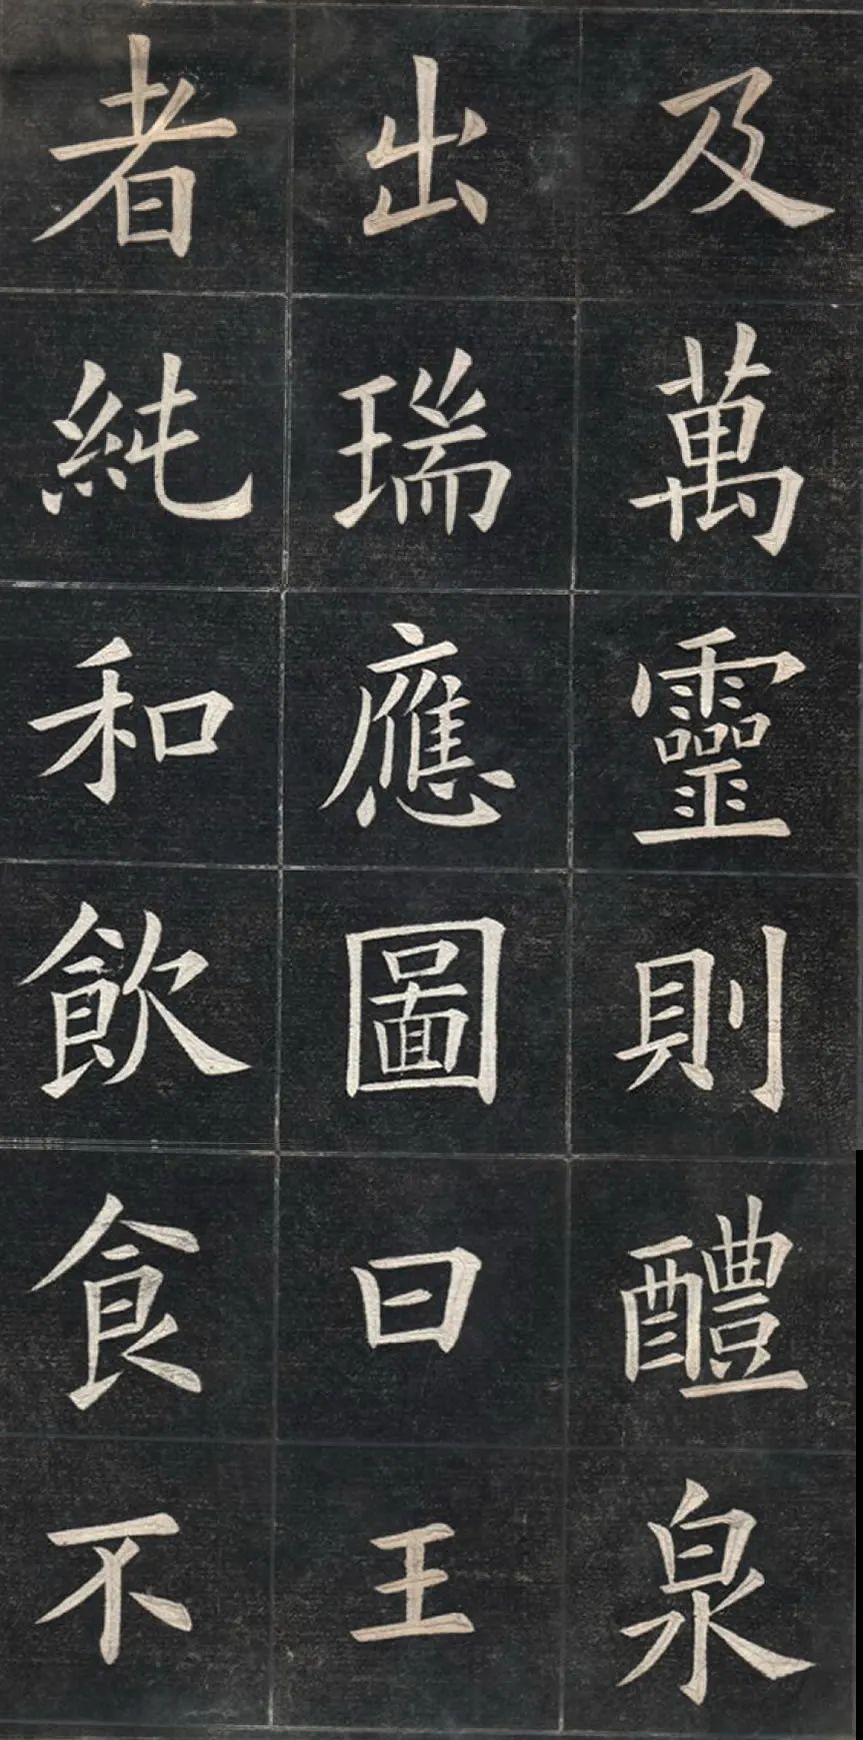 及萬靈則醴泉
出瑞應圖曰王
者純和飲食不